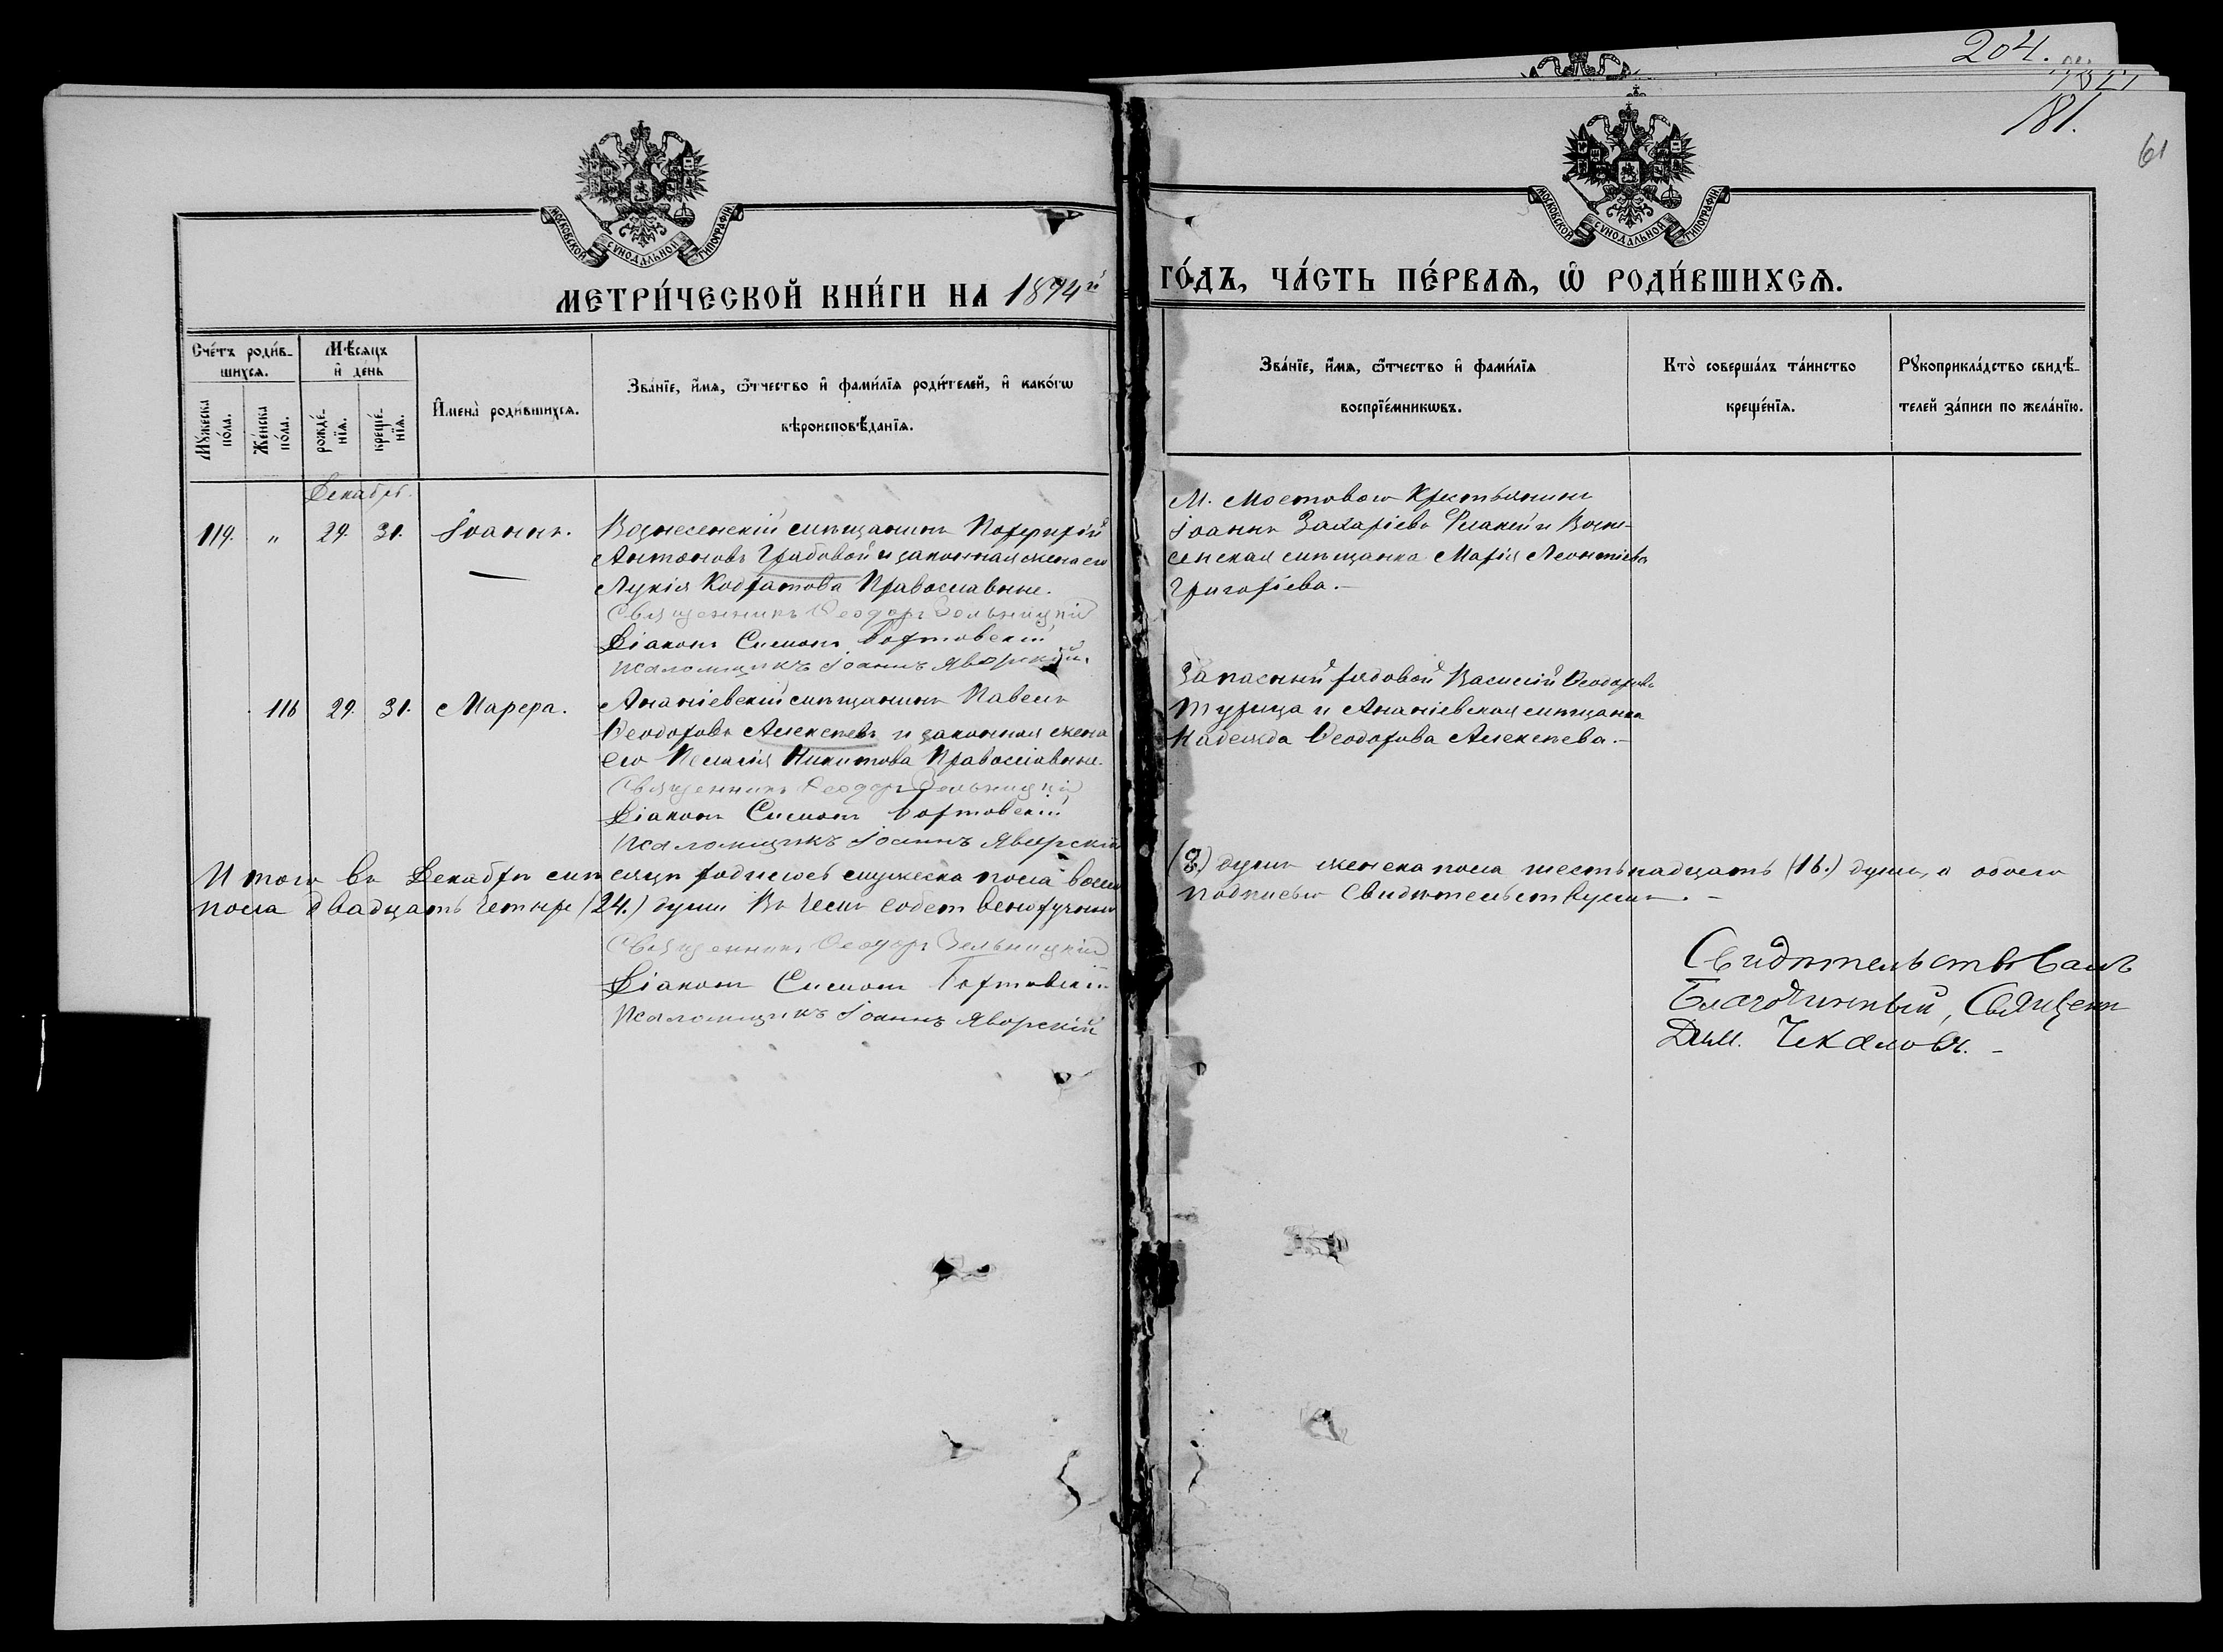 204.
181.
61
МОСКОВСКОЙ СѴНОДАЛЬНОЙ ТИПОГРАФІИ
МОСКОВСКОЙ СѴНОДАЛЬНОЙ ТИПОГРАФІИ
МЕТРИ́ЧЕСКОЙ КНИ́ГИ НА 1894й ГО́ДЪ, ЧА́СТЬ ПЕ́РВАѦ, Ѡ҆ РОДИ́ВШИХСѦ.
Сче́тъ роди́в-
шихсѧ.
Мꙋ́жеска
по́ла.
Же́нска
по́ла.
Мѣ́сѧцъ
и҆ де́нь
рожде́-
нїѧ.
креще́-
нїѧ.
И҆мена̀ роди́вшихсѧ.
Зва́нїе, и҆́мѧ, ѻ҆́тчество и҆ фами́лїѧ роди́телей, и҆ како́гѡ
вѣроисповѣ́данїѧ.
Зва́нїе, и҆́мѧ, ѻ҆́тчество и҆ фами́лїѧ
воспрїе́мникѡвъ.
Кто̀ соверша́лъ та́инство
креще́нїѧ.
Рꙋкоприкла́дство свидѣ́-
телей за́писи по жела́нїю.
Декабрь.
119. " 29. 31. Іоаннъ.
Вознесенскій мѣщанинъ Порфирій
Антоновъ Грабовой и законная жена его
Лукія Кодратова Православные.
Священникъ Ѳеодоръ Зельницкій
Діаконъ Симонъ Бортовскій
Псаломщикъ Іоаннъ Яворскій.
М. Мостового Крестьянинъ
Іоаннъ Захаріевъ и Возне-
сенская мѣщанка Марія Леонтіева
Григоріева.
116 29. 31. Марѳа.
Ананіевскій мѣщанинъ Павелъ
Ѳеодоровъ Алексѣевъ и законная жена
его Пелагія Никитова Православные.
Священникъ Ѳеодоръ Зельницкій
Діаконъ Симонъ Бортовскій
Псаломщикъ Іоаннъ Яворскій
Запасный рядовой Василій Ѳеодоровъ
Турица и Ананіевская мѣщанка
Надежда Ѳеодорова Алексѣева.
Итого въ Декабрѣ мѣсяцѣ родилось мужеска пола восемь (8.) душъ женска пола шестьнадцать (16.) душъ, а обоего
пола двадцать четыре (24.) души Въ чемъ собственноручною подписью Свидѣтельствуемъ. –
Священникъ Ѳеодоръ Зельницкій
Діаконъ Симонъ Бортовскій
Псаломщикъ Іоаннъ Яворскій
Свидѣтельствовалъ
Благочинный, Священ
Дим. Чекановъ. –